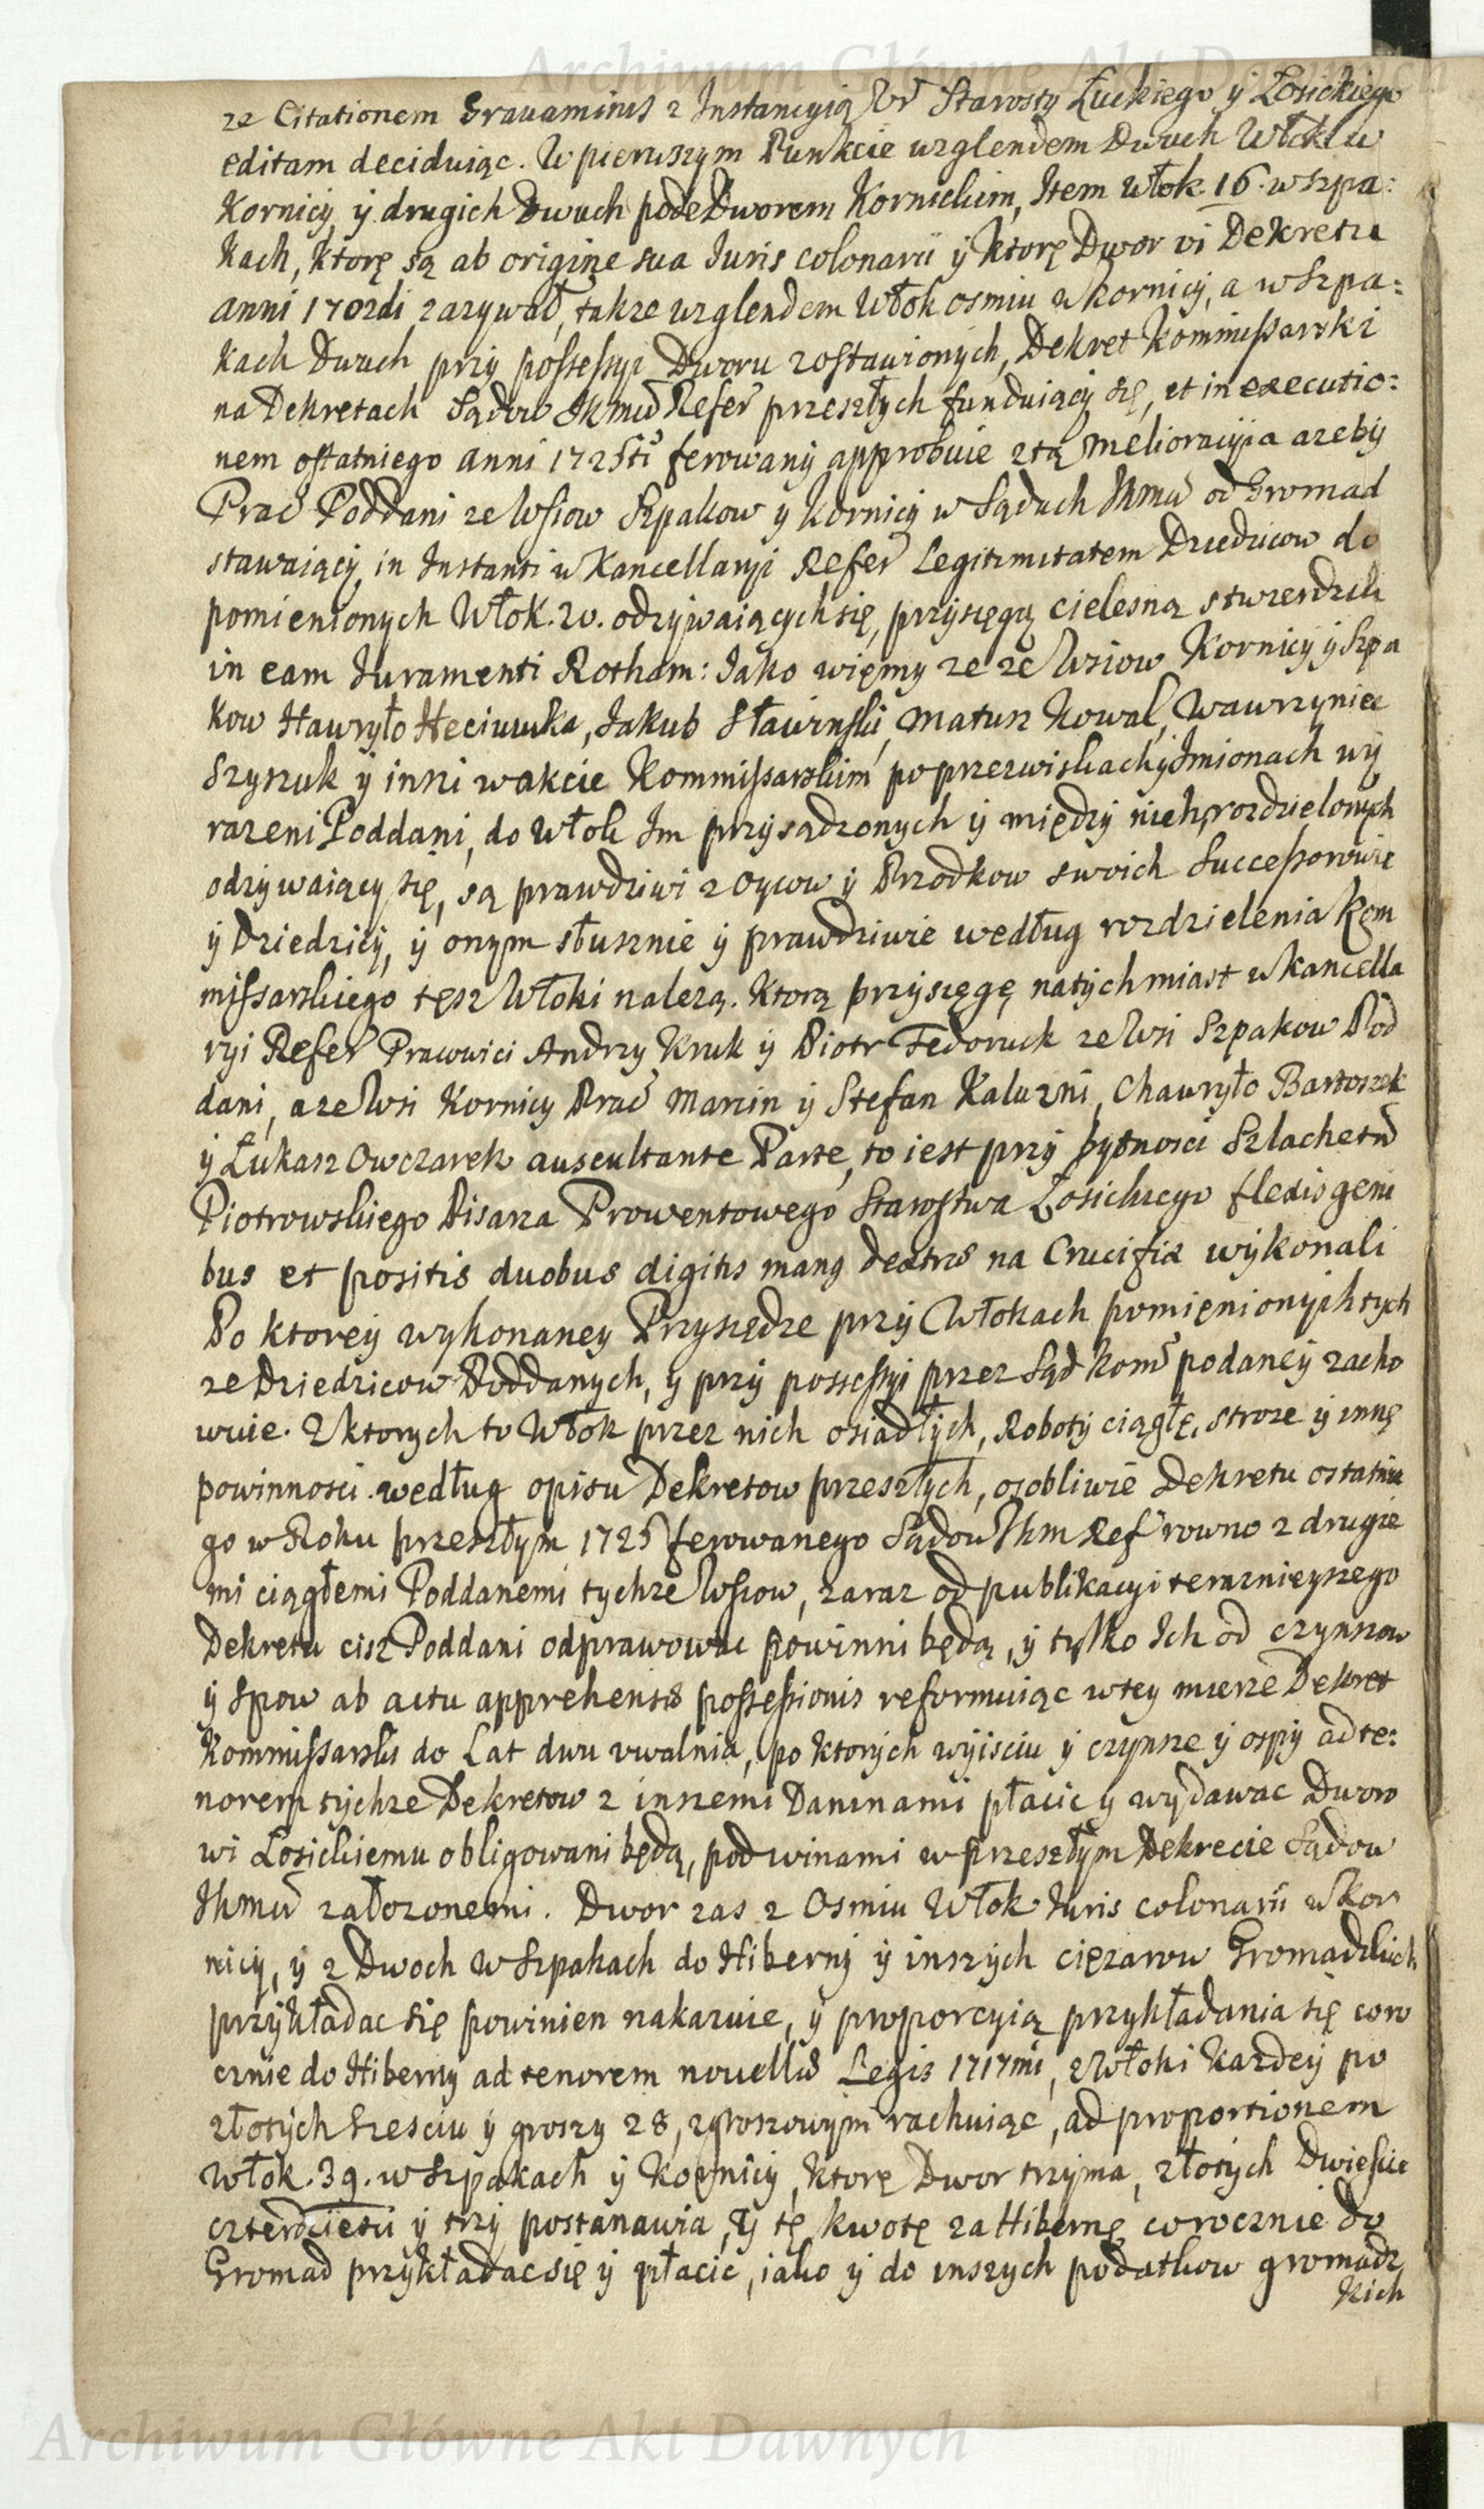 Archiwum Główne Akt Dawnych
ze Citationem Gravaminis z Instancyią Ur Starosty Łuckiego ÿ Łosickiego
editam deciduiąc. W pierwszym Punkcie wzglendem Dwuch Włok w
Kornicÿ, ÿ drugich Dwuch pode Dworem Kornickim, Item Włok. 16. w Szpa:
kach, ktorę są ab origine sua Iuris colonarii ÿ ktorę Dwor vi Dekretu
anni 1702di zazywał, takze wzglendem Włok osmiu w Kornicÿ, a w Szpa:
kach Dwuch przÿ possessyi Dworu zostawionych, Dekret Kommissarski
na Dekretach Sądow Ikmw Refer przeszłych funduiącÿ się, et in executio:
nem ostatniego anni 1725ti ferowanÿ approbuie z tą melioracyia azebÿ
Prac Poddani ze Wsiow Szpakow y Kornicÿ w Sądach Ikmw od Gromad
stawaiącÿ in Instanti w Kancellaryi Refer Legitimitatem Dziedzicow do
pomienionych Włok. 20. odzÿwaiących się, przysięgą cielesną stwierdzili
in eam Iuramenti Rotham: Jako więmy ze ze Wsiow Kornicÿ ÿ Szpa
kow Hawryło Heciuuka, Jakub Sławinski, Matusz Kowal, Wawrzyniec
Szyszuk ÿ inszi w akcie Kommissarskim po przezwiskach ÿ Imionach wÿ
razeni Poddani, do Włok Im przysądzonych ÿ międzÿ nich rozdzielonych
odzywaiącÿ się, są prawdziwi z Oycow ÿ Przodkow swoich Successorowie
ÿ Dziedzicÿ, ÿ onym słusznie ÿ prawdziwie według rozdzielenia Kom
missarskiego tęsz Włoki nalezą. Ktorą przysięgę natÿchmiast w Kancella
ryi Refer Pracowici Andrzy Kruk ÿ Piotr Fedoruck ze Wsi Szpakow Pod
dani, a ze Wsi Kornicy Prac Marcin ÿ Stefan Kaluzni, Chawryło Bartoszek
ÿ Łukasz Owczarek auscultante Parte, to iest przÿ bytnosci Szlachetn
Piotrowskiego Pisarza Prowentowego Starostwa Łosickiego flexis geni
bus et positis duobus digitis manq dextrs na Crucifix wykonali
Po ktoreÿ wykonaney Przysiędze przÿ Włokach pomięnionÿch tych
ze Dziedzicow Poddanych, y przÿ possessyi przez Sąd Kom podanęÿ zacho
wuie. Z ktorych to Włok przez nich osiadłych, Robotÿ ciągłę, stroze ÿ innę
powinnosci według opisu Dekretow przeszłych, osobliwie Dekretu ostatnie
go w Roku przeszłym 1725 ferowanego Sądow Ikm Ref rowno z drugie
mi ciągłemi Poddanemi tychze Wsiow, zaraz od publikacyi terazniejszego
Dekretu cisz Poddani odprawowac powinni będą, ÿ tylko Ich od czynszow
ÿ Spow ab actu apprehensis possessionis reformuiąc w tey mierze Dekret
Kommissarski do Lat dwu uwalnia, po ktorÿch wÿisciu ÿ czynsze ÿ ospÿ ad te:
norem tÿchze Dekretow z inszemi Daninami płacic y wÿdawac Dworo
wi Łosickiemu obligowani będą, pod winami w przeszłym Dekrecie Sądow
Ikmw załozonemi. Dwor zas z Osmiu Włok Iuris colonarii w Kor
nicÿ, ÿ z Dwoch w Szpakach do Hibernÿ ÿ inszÿch cięzarow Gromadzkich
przÿkładac się powinien nakazuie, ÿ proporcyią przykładania się coro
cznie do Hiberny ad tenorem novells Legis 1717mi, z Włoki kazdeÿ po
złotÿch szesciu ÿ groszy 28, zgroszowÿm rachuiąc, ad proportionem
Włok. 39. w Szpakach ÿ Kornicÿ, ktorę Dwor trzÿma, złotÿch Dwiescie
czterdziesci ÿ trzÿ postanawia, y tę kwotę za Hibernę corocznie do
Gromad przykładac się ÿ płacic, iako ÿ do inszych podatkow gromadz
kich
Archiwum Główne Akt Dawnych